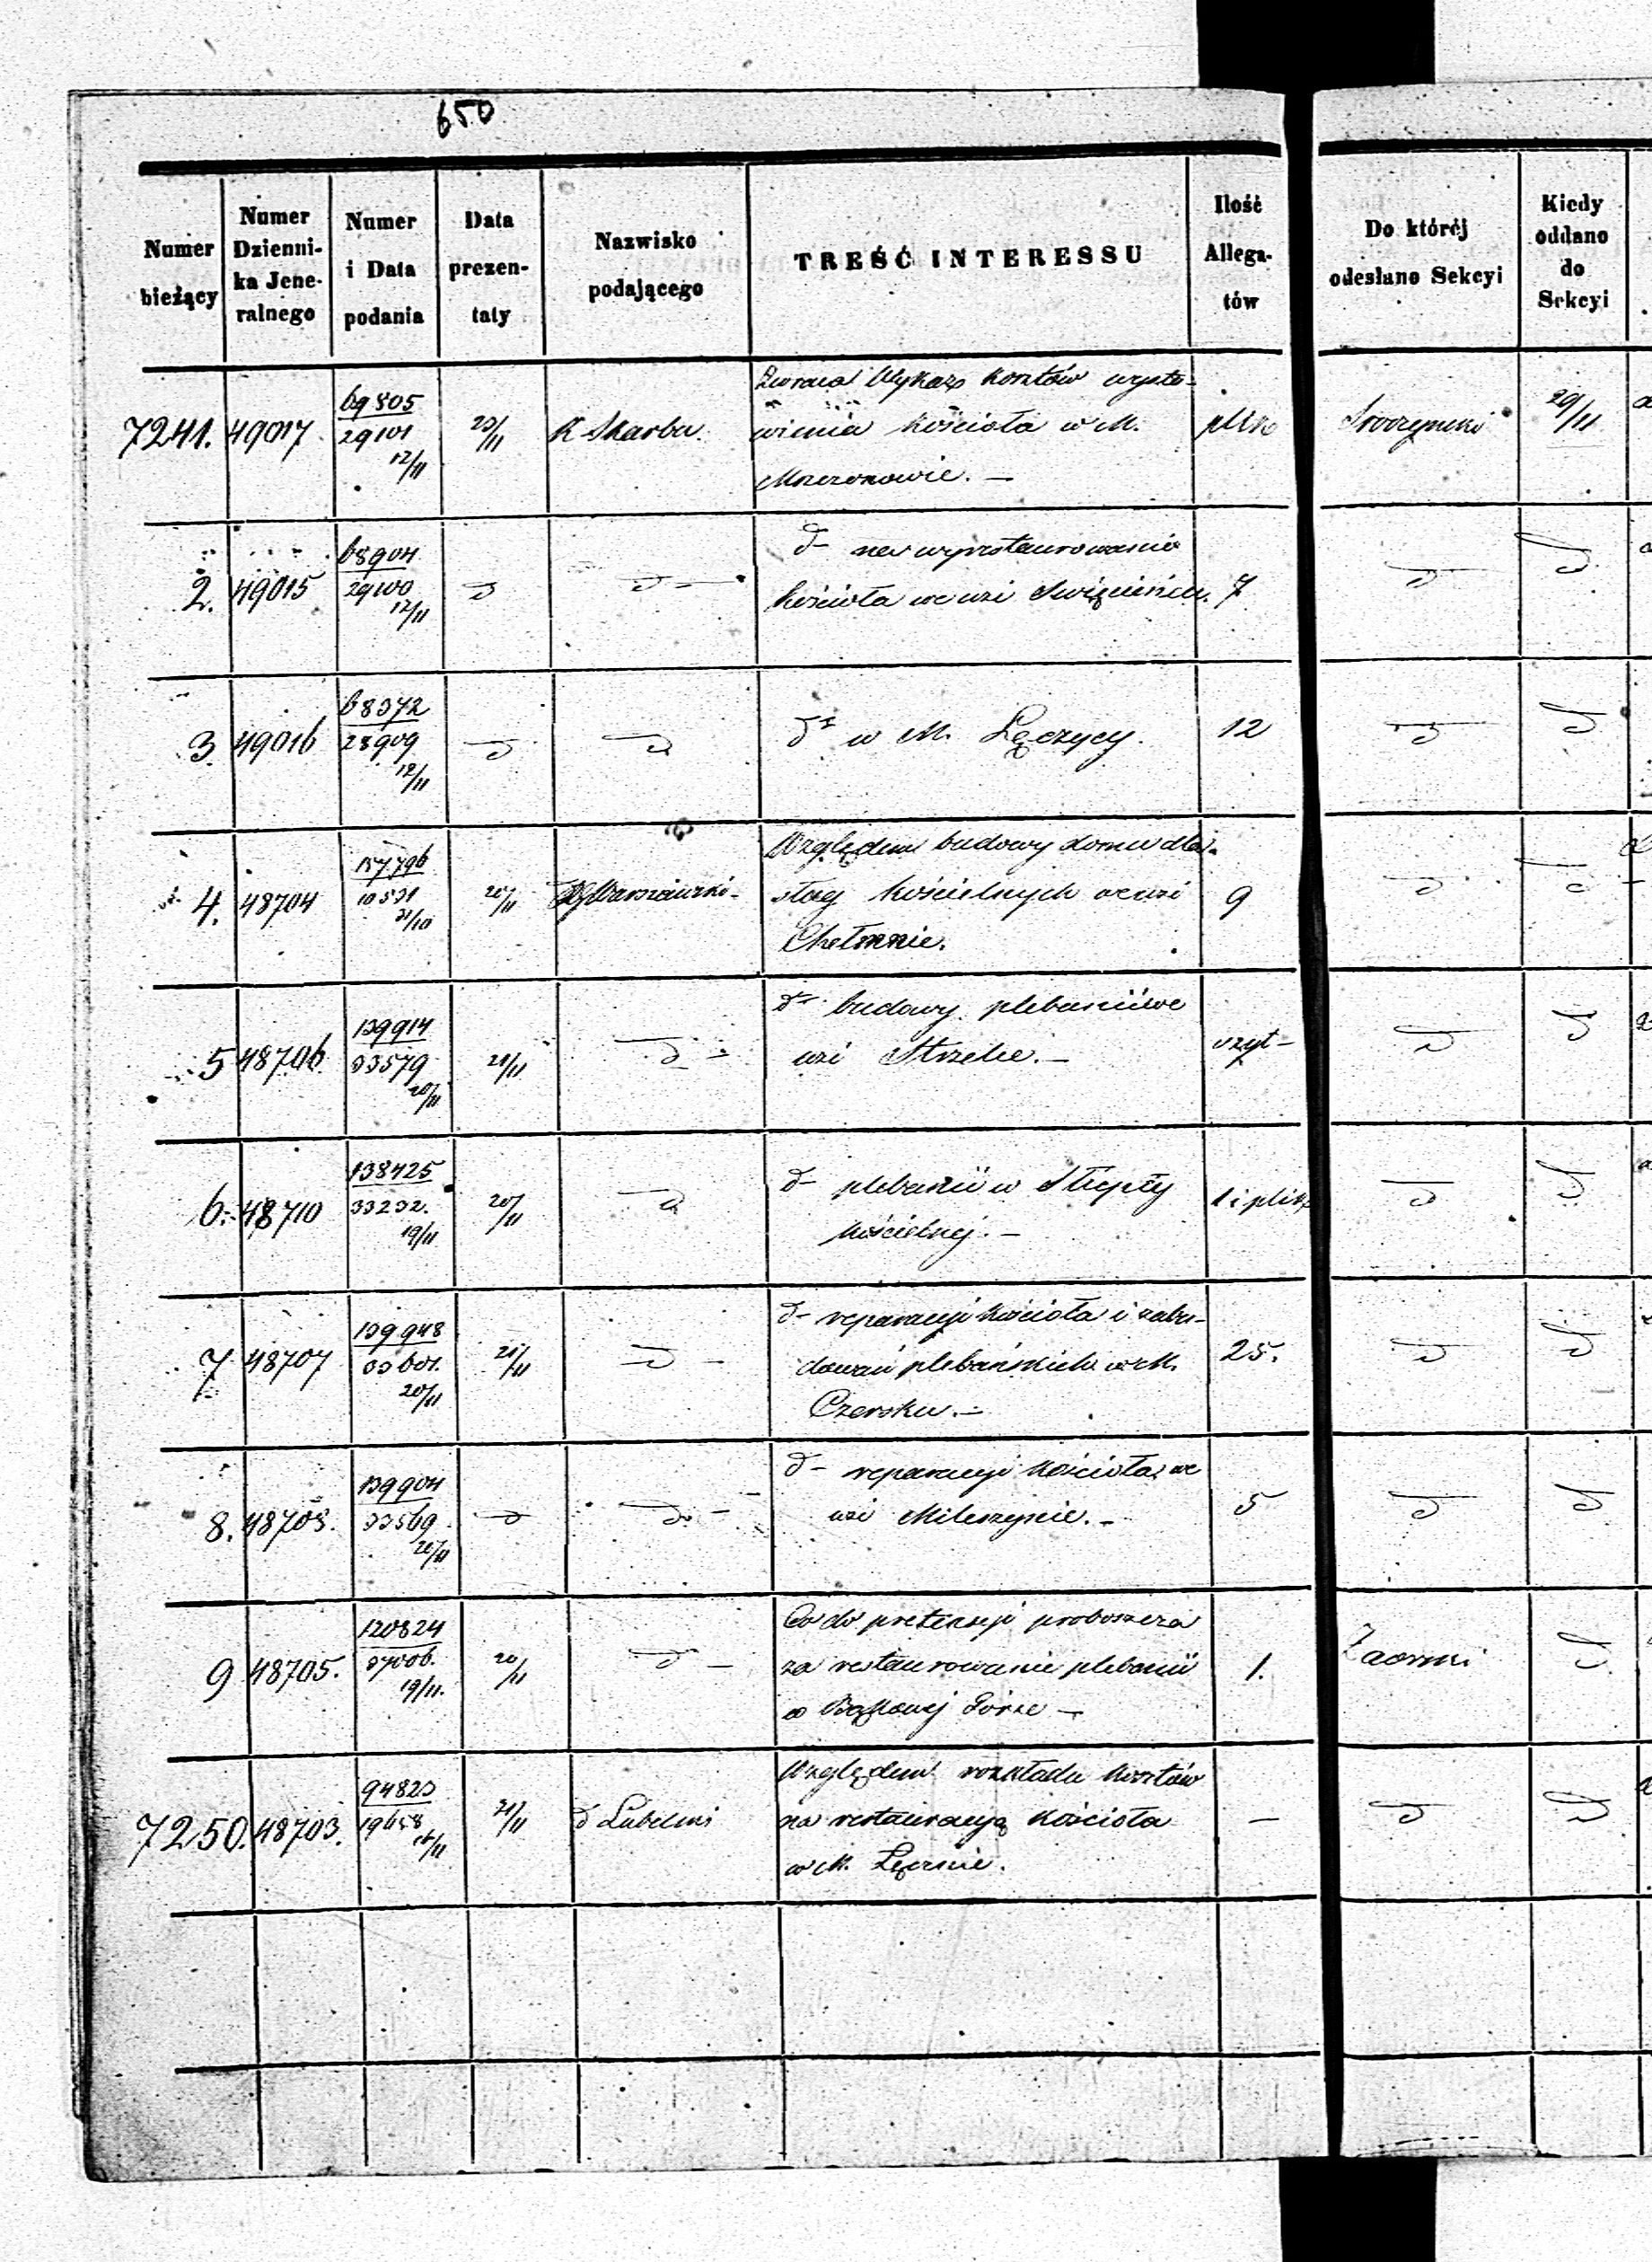 650
Numer bieżący
Numer Dzienni-ka Jene-ralnego
Numer i Data podania
Data prezen-taty
Nazwisko podającego
TREŚĆ INTERESSU
Ilość Allega-tów
Do któréj odesłano Sekcyi
Kiedy oddano do Sekcyi
7241. 49017
29101
12/11
K Skarbu.
Zwraca Wykaz kosztów wysta-
wienia kościoła w M.
Mszczonowie. —
29/11
2. 49015
68904
29100
12/11
d
d — na wyrestaurowanie
kościoła we wsi
7
3. 49016
68372
28909
12/11
d
w M. Łęczycy.
12
4. 48704
10531
31/10
20/11
Względem budowy domu dla
sług kościelnych we wsi
Chełmnie.
9
5 48706.
139914
33579
20/11
21/11
budowy plebanii we
wsi Strzelce. —
6. 48710
138425
33232.
19/11
20/11
d — plebanii w
kościelnej. —
7 48707
139948
33601.
20/11
21/11
d — reparacyi kościoła i zabu-
dowań plebańskich w M.
Czersku. —
25.
8. 48708.
139904
33569
20/11
d — reparacyi kościoła we
wsi Mileszynie. —
5
9 48705.
120824
19/11.
20/11
Co do pretensyi proboszcza
za restaurowanie plebanii
w Bąkowej Górze —
1.
7250. 48703.
94823
21/11
d Lubelski
Względem rozkładu kosztów
na restauracyą kościoła
w M. Łęcznie.
—